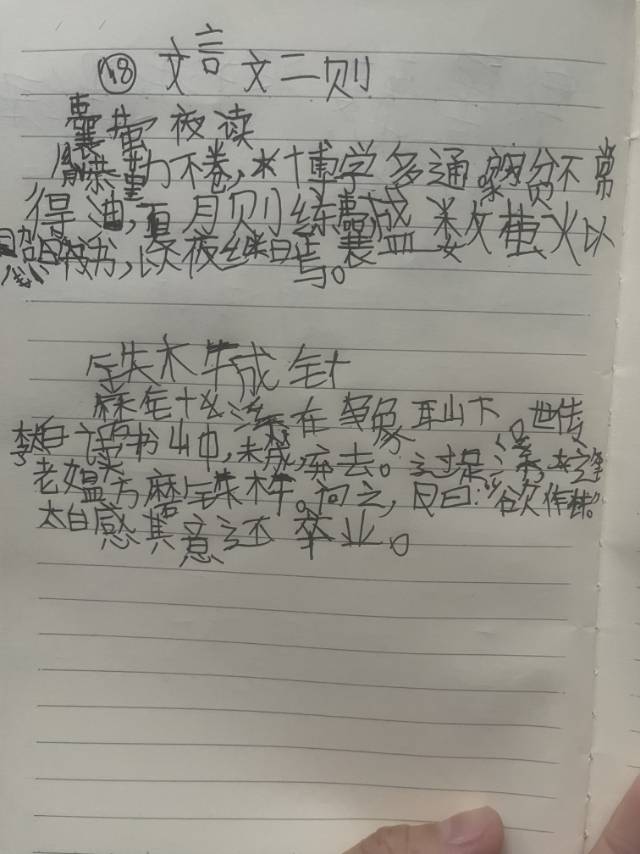 ⑱ 文言文二则
囊萤夜读
胤恭勤不卷,博学多通家贫不常
得油,夏月则练囊盛数萤火以
照书,以夜继日焉。
铁杵成针
在象耳山下。世传
李白读书山中,未成,弃去。过是溪,逢
老媪方磨铁杵。问之,曰:“欲作针。”
太白感其意还卒业。